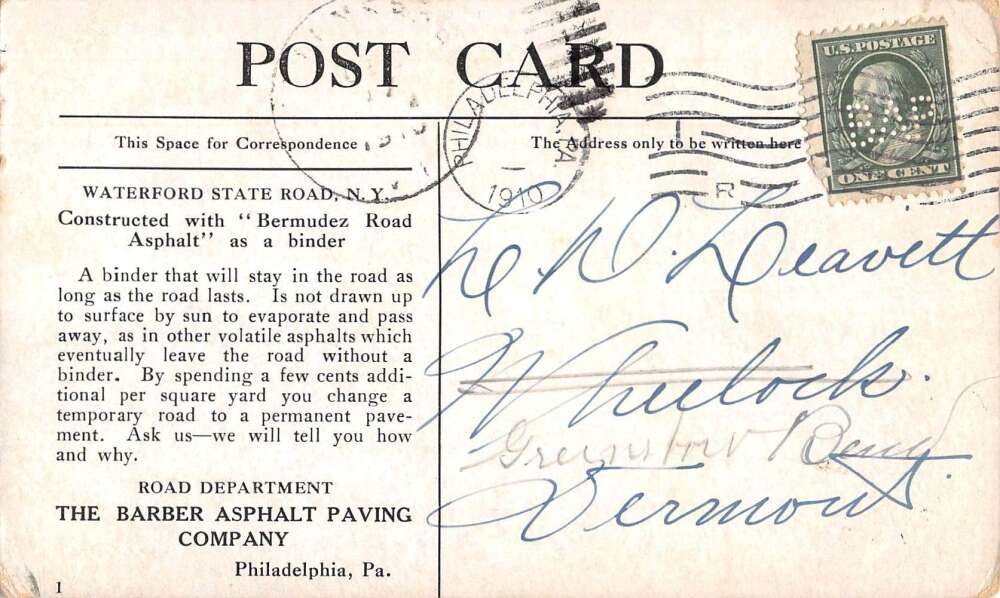 POST CARD
This Space for Correspondence
The Address only to be written here
PHILADELPHIA, PA.
1910
R
U.S. POSTAGE
ONE CENT
WATERFORD STATE ROAD, N. Y.
Constructed with "Bermudez Road
Asphalt" as a binder
A binder that will stay in the road as
long as the road lasts. Is not drawn up
to surface by sun to evaporate and pass
away, as in other volatile asphalts which
eventually leave the road without a
binder. By spending a few cents addi-
tional per square yard you change a
temporary road to a permanent pave-
ment. Ask us—we will tell you how
and why.
ROAD DEPARTMENT
THE BARBER ASPHALT PAVING
COMPANY
Philadelphia, Pa.
1
D. Leavett
Wheelock.
Vermont.